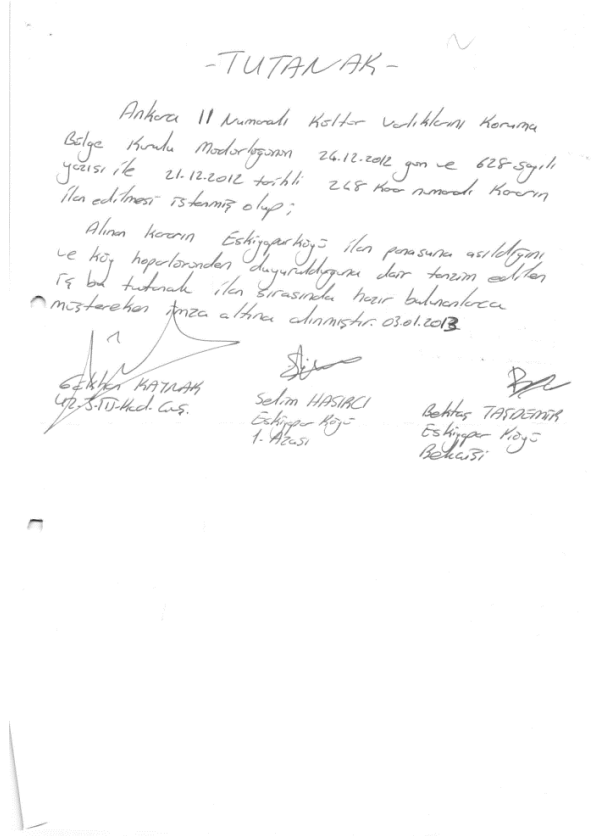 -TUTANAK-
Ankara II Numaralı Kültür Varlıklarını Koruma
Bölge Kurulu Müdürlüğünün 26.12.2012 gün ve 628 sayılı
yazısı ile 21.12.2012 tarihli 268 numaralı Kararın
ilan edilmesi istenmiş olup;
Alınan kararın Eskiyapar Köyü ilan panosuna asıldığını
ve köy hoparlöründen duyurulduğuna dair tanzim edilen
iş bu tutanak ilan sırasında hazır bulunanlarca
müştereken imza altına alınmıştır. 03.01.2013
KAYNAK
Selim HASIRCI
Eskiyapar Köyü
1. Azası
Bektaş TAŞDEMİR
Eskiyapar Köyü
Bekçisi